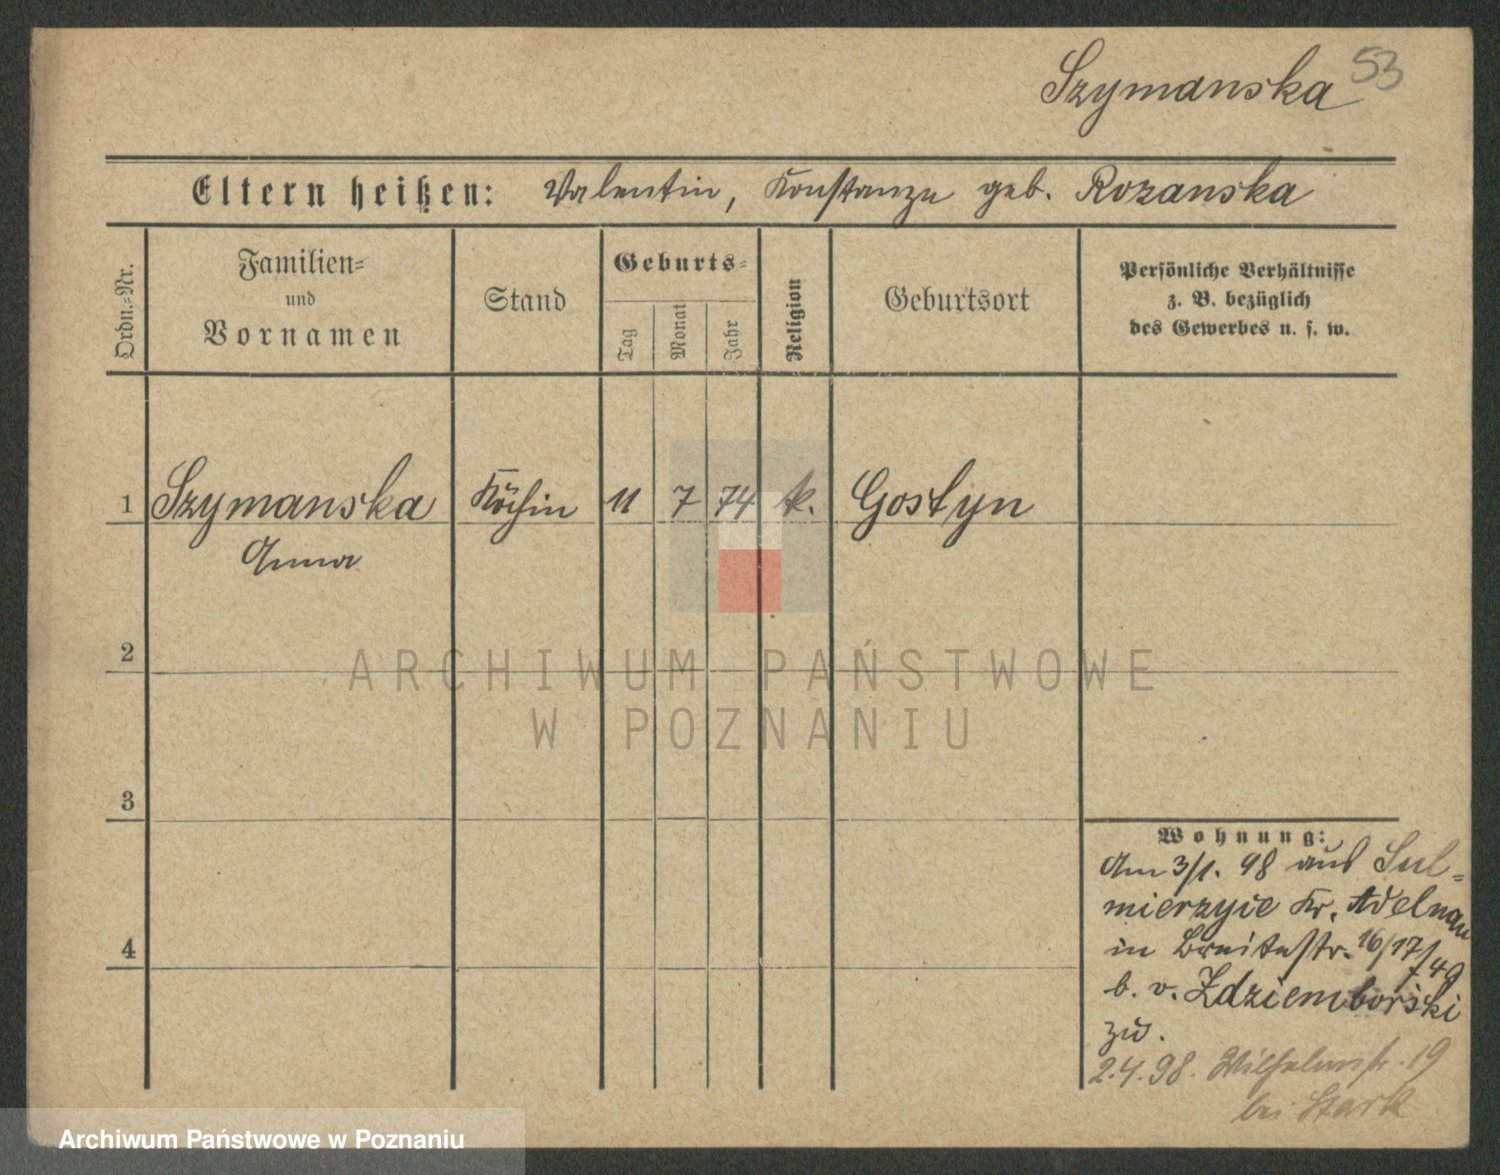 Szymanska 53
Eltern heißen: Valentin, Konstanze geb. Rozanska
Ordn.=Nr.
Familien=
und
Vornamen
Stand
Geburts=
Tag
Monat
Jahr
Religion
Geburtsort
Persönliche Verhältnisse
z. B. bezüglich
des Gewerbes u. s. w.
1 Szymanska Köchin 11 7 74 k. Gostyn
Anna
2
3
4
Wohnung:
Am 3/1. 98 aus Sul=
mierzyce Kr. Adelnau
in Breitestr. 16/17
b. v. Zdziemborski
zu.
2.4.98. Wilhelmstr. 19
bei Stark
ARCHIWUM PAŃSTWOWE
W POZNANIU
Archiwum Państwowe w Poznaniu